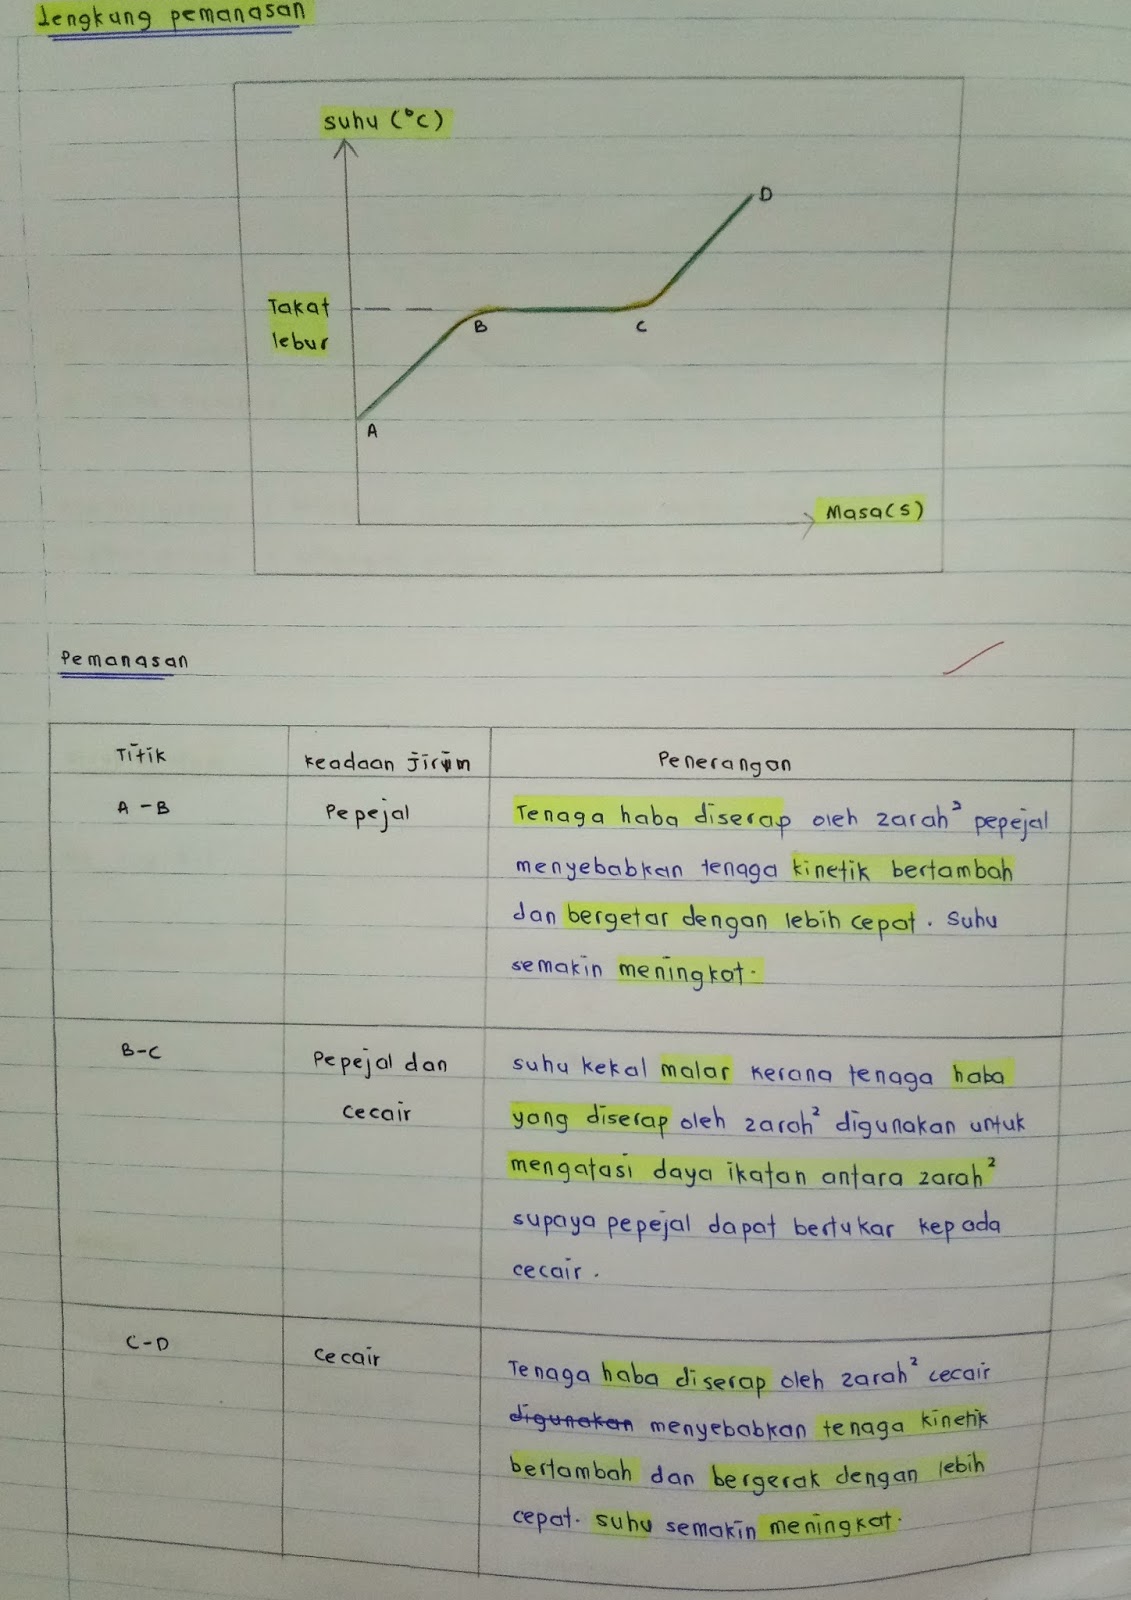 Lengkung pemanasan
suhu (°C)
D
Takat
lebur
B
C
A
Masa(s)
Pemanasan
Titik
Keadaan jirim
Penerangan
A - B
Pepejal
Tenaga haba diserap oleh zarah² pepejal
menyebabkan tenaga kinetik bertambah
dan bergetar dengan lebih cepat. Suhu
semakin meningkat.
B-C
Pepejal dan
cecair
suhu kekal malar kerana tenaga haba
yang diserap oleh zarah² digunakan untuk
mengatasi daya ikatan antara zarah²
supaya pepejal dapat bertukar kepada
cecair.
C-D
Cecair
Tenaga haba diserap oleh zarah² cecair
digunakan menyebabkan tenaga kinetik
bertambah dan bergerak dengan lebih
cepat. suhu semakin meningkat.